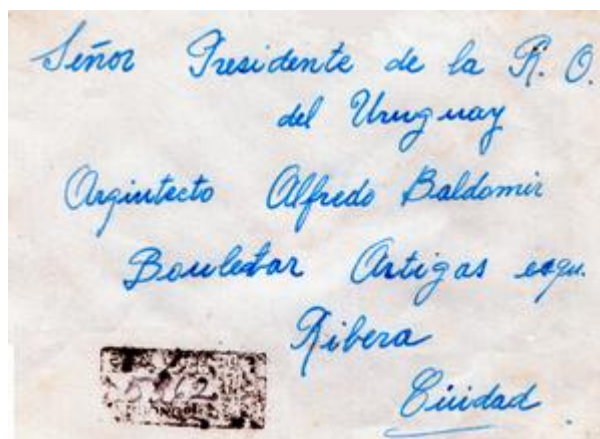 Señor Presidente de la R. O.
del Uruguay
Arquitecto Alfredo Baldomir
Boulebar Artigas esqu.
Ribera
Ciudad